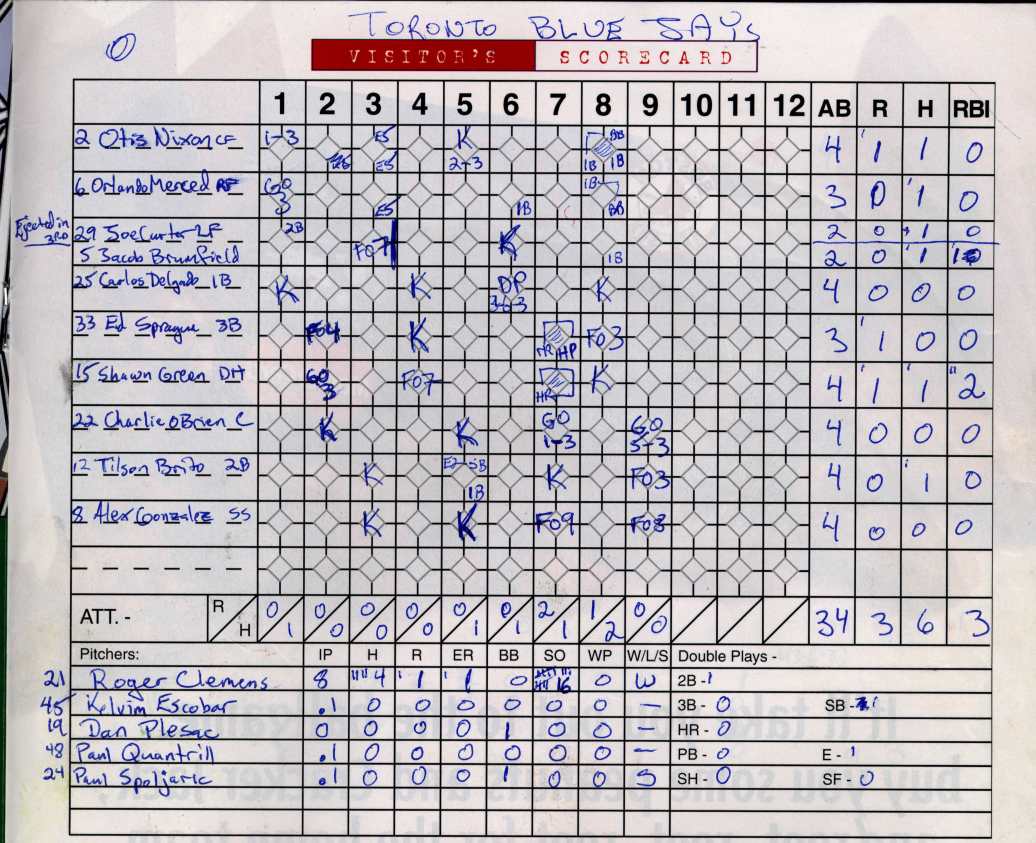 0
TORONTO BLUE JAYS
VISITOR'S SCORECARD
1 2 3 4 5 6 7 8 9 10 11 12 AB R H RBI
2 Otis Nixon CF 1-3 E5 E5 K 2-3 BB 1B 1B 4 1 1 0
6 Orlando Merced RF GO 3 E5 1B 1B BB 3 0 1 0
Ejected in 3RD
29 Joe Carter LF 2B FO7 K 2 0 1 0
5 Jacob Brumfield 1B 2 0 1 1
25 Carlos Delgado 1B K K DP 3-6-3 K 4 0 0 0
33 Ed Sprague 3B FO4 K HR HP FO3 3 1 0 0
15 Shawn Green DH GO 3 FO7 HR K 4 1 1 2
22 Charlie O'Brien C K K GO 1-3 GO 5-3 4 0 0 0
12 Tilson Brito 2B K E2-SB 1B K FO3 4 0 1 0
8 Alex Gonzalez SS K K FO9 FO8 4 0 0 0
ATT. - R/H 0/1 0/0 0/0 0/0 0/1 0/1 2/1 1/2 0/0 34 3 6 3
Pitchers: IP H R ER BB SO WP W/L/S Double Plays -
21 Roger Clemens 8 4 1 1 0 16 0 W 2B - 1
45 Kelvim Escobar .1 0 0 0 0 0 0 — 3B - 0 SB - 1
19 Dan Plesac 0 0 0 0 1 0 0 — HR - 0
48 Paul Quantrill .1 0 0 0 0 0 0 — PB - 0 E - 1
24 Paul Spoljaric .1 0 0 0 1 0 0 S SH - 0 SF - 0